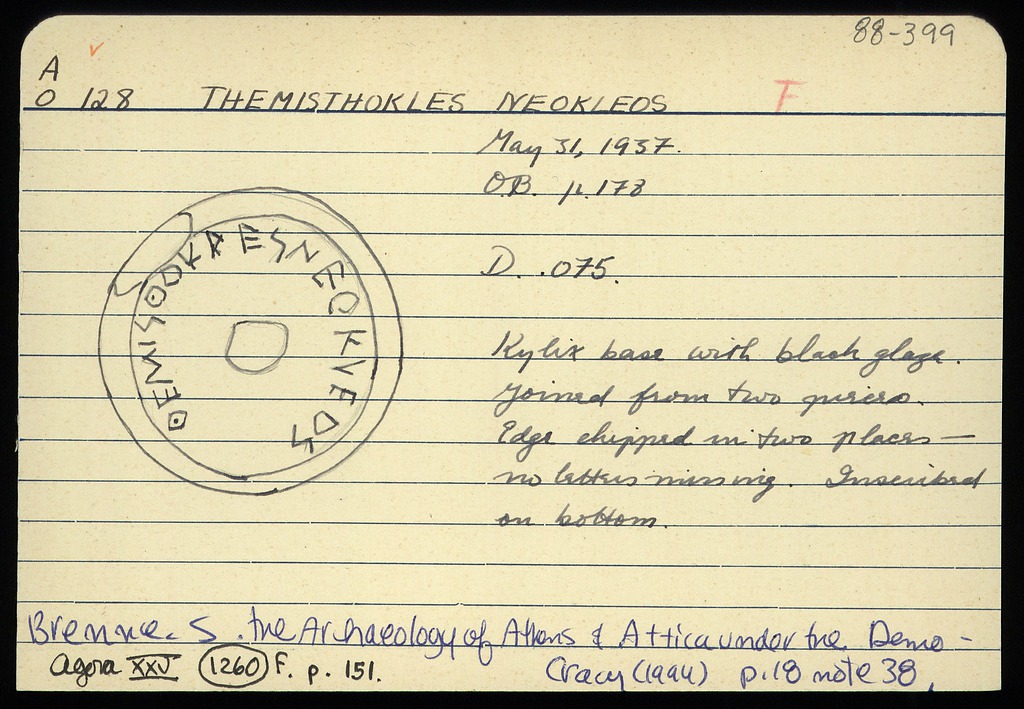 88-399
A
O 128 THEMISTHOKLES NEOKLEOS F
May 31, 1937.
O.B. p. 178
D. .075.
Kylix base with black glaze.
Joined from two pieces.
Edge chipped in two places —
no letters missing. Inscribed
on bottom.
Brenne. S. the Archaeology of Athens & Attica under the Demo-
cracy (1994) p.18 note 38,
Agora XXV 1260 F. p. 151.